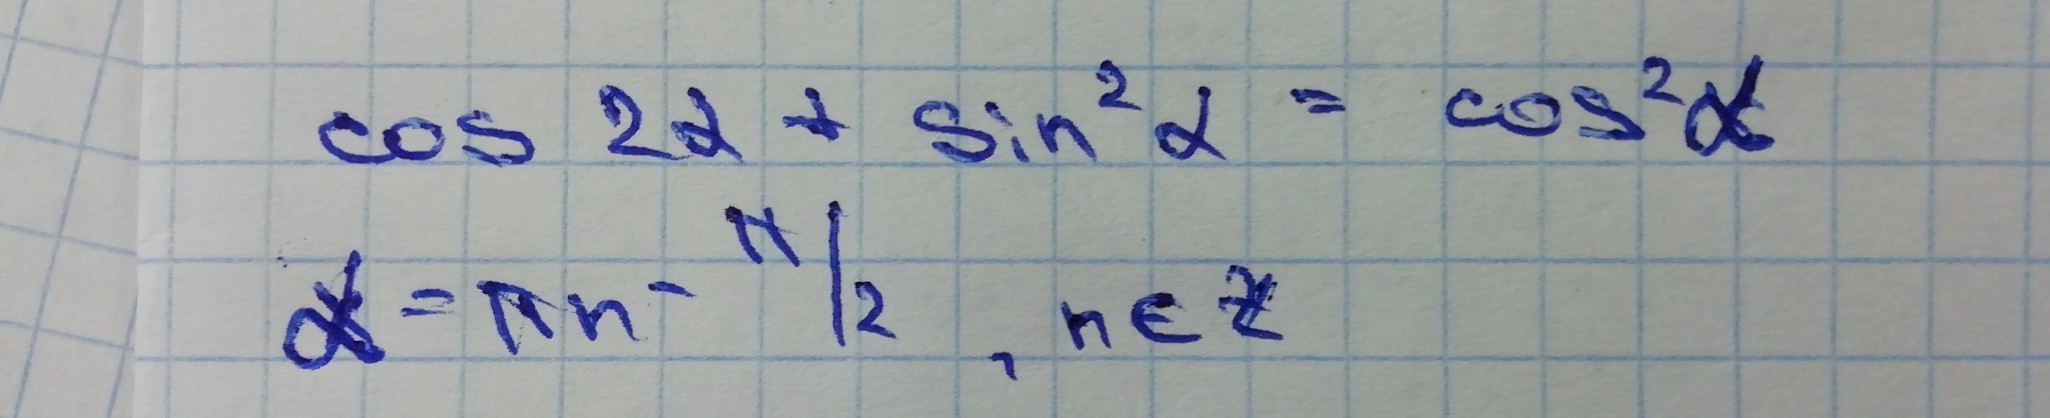 cos 2α + sin²α = cos²α
α = πn - π/2 , n ∈ Z